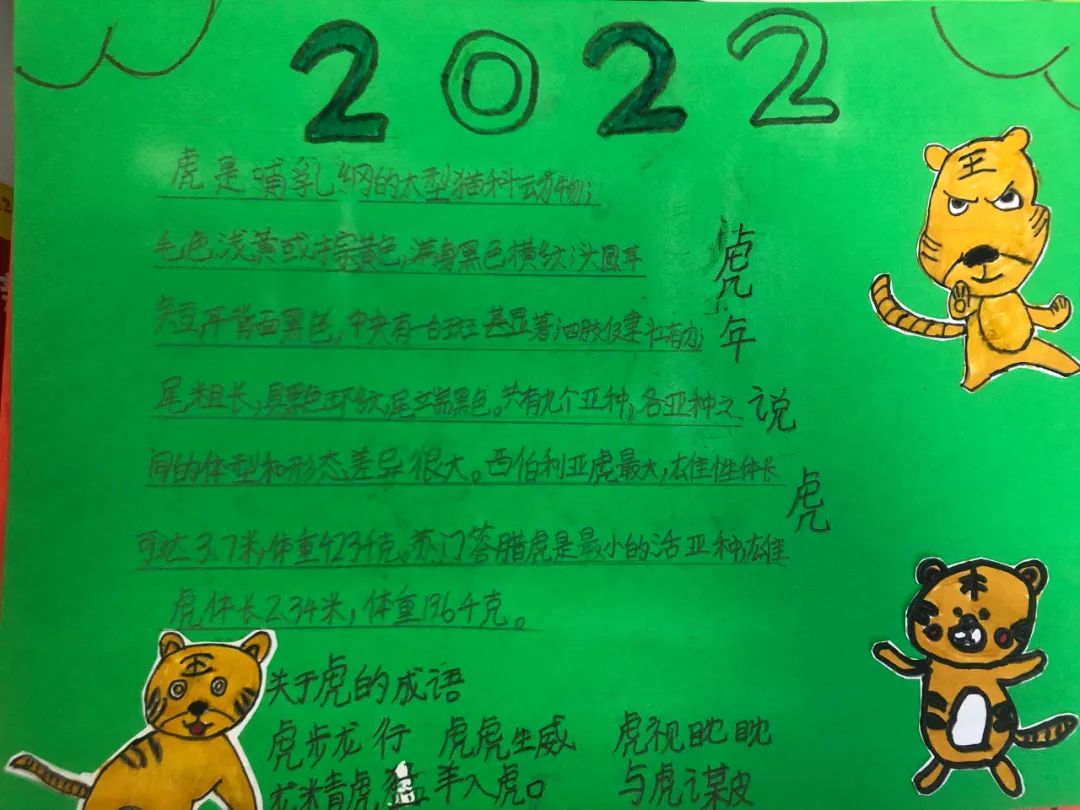 2022
虎是哺乳纲的大型猫科动物；
毛色浅黄或棕黄色，满身黑色横纹；头圆耳
短，耳背面黑色，中央有一白斑甚显著；四肢健壮有力；
尾粗长，具黑色环纹，尾端黑色。共有九个亚种，各亚种之
间的体型和形态差异很大。西伯利亚虎最大，雄性体长
可达3.7米，体重423千克。苏门答腊虎是最小的活亚种，雄
虎体长2.34米，体重136千克。
虎年说虎
关于虎的成语
虎步龙行 虎虎生威 虎视眈眈
龙精虎猛 羊入虎口 与虎谋皮
王
王